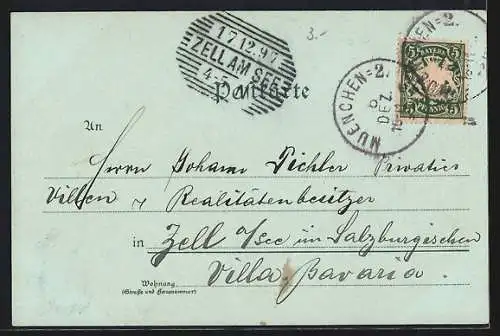 3.-
17.12.97
ZELL AM SEE
4-5
MUENCHEN 2.
DEZ.
BAYERN
5 5
5 PFENNIG 5
Postkarte
An
Herrn Johann Pichler Privatier
Villen u Realitätenbesitzer
in Zell a/See im Salzburgischen
Villa Bavaria.
Wohnung
(Straße und Hausnummer)